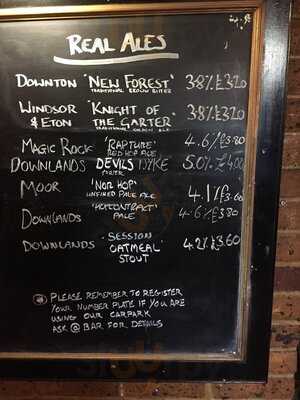 REAL ALES
DOWNTON 'NEW FOREST' 3.8% £3.20
TRADITIONAL BROWN BITTER
WINDSOR 'KNIGHT OF 3.8% £3.20
& ETON THE GARTER'
TRADITIONAL GOLDEN ALE
MAGIC ROCK 'RAPTURE' 4.6% £3.80
RED HOP ALE
DOWNLANDS DEVILS DYKE 5.0% £4.00
PORTER
MOOR 'NOR HOP' 4.1% £3.60
UNFINED PALE ALE
DOWNLANDS PALE 4.6% £3.80
DOWNLANDS SESSION 4.2% £3.60
'OATMEAL'
STOUT
PLEASE REMEMBER TO REGISTER
YOUR NUMBER PLATE IF YOU ARE
USING OUR CARPARK
ASK @ BAR FOR DETAILS